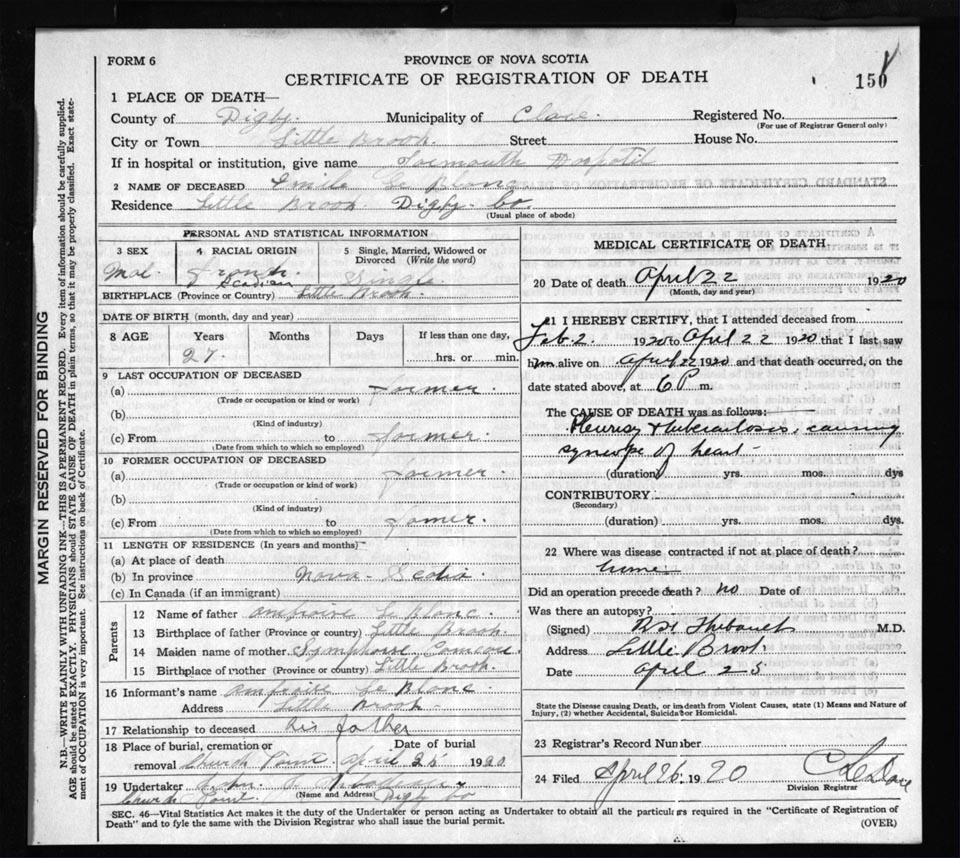 FORM 6
PROVINCE OF NOVA SCOTIA
CERTIFICATE OF REGISTRATION OF DEATH
150
1 PLACE OF DEATH—
County of Digby. Municipality of Clare. Registered No.
(For use of Registrar General only)
City or Town Little Brook. Street House No.
If in hospital or institution, give name
2 NAME OF DECEASED Emile Le Blanc.
Residence Little Brook. Digby. Co.
(Usual place of abode)
PERSONAL AND STATISTICAL INFORMATION
3 SEX
4 RACIAL ORIGIN
5 Single, Married, Widowed or Divorced (Write the word)
Mal.
French.
Acadian
Single
BIRTHPLACE (Province or Country) Little Brook.
DATE OF BIRTH (month, day and year)
8 AGE Years Months Days If less than one day,
27. hrs. or min.
9 LAST OCCUPATION OF DECEASED
(a) former.
(Trade or occupation or kind or work)
(b)
(Kind of industry)
(c) From to former.
(Date from which to which so employed)
10 FORMER OCCUPATION OF DECEASED
(a) former.
(Trade or occupation or kind of work)
(b)
(Kind of industry)
(c) From to fomer.
(Date from which to which so employed)
11 LENGTH OF RESIDENCE (In years and months)
(a) At place of death
(b) In province Nova - Scotia.
(c) In Canada (if an immigrant)
Parents
12 Name of father Ambroise Le Blanc.
13 Birthplace of father (Province or country) Little Brook.
14 Maiden name of mother Comeau.
15 Birthplace of mother (Province or country) Little Brook.
16 Informant's name Le Blanc.
Address Little Brook.
17 Relationship to deceased his father
18 Place of burial, cremation or Date of burial
removal Church Point. April 25 1920.
19 Undertaker John
(Name and Address)
Church Point. Digby Co
MEDICAL CERTIFICATE OF DEATH
20 Date of death April 22 1920
(Month, day and year)
21 I HEREBY CERTIFY, that I attended deceased from
Feb. 2. 1920 to April 22 1920 that I last saw
him alive on April 22 1920 and that death occurred, on the
date stated above, at 6 P m.
The CAUSE OF DEATH was as follows:
Pleurisy & tuberculosis, causing
syncope of heart
(duration) yrs. mos. dys
CONTRIBUTORY
(Secondary)
(duration) yrs. mos. dys.
22 Where was disease contracted if not at place of death?
home
Did an operation precede death? no Date of
Was there an autopsy?
(Signed) Thibault M.D.
Address Little Brook
Date April 25
State the Disease causing Death, or in death from Violent Causes, state (1) Means and Nature of Injury, (2) whether Accidental, Suicidal or Homicidal.
23 Registrar's Record Number
24 Filed April 26. 1920
Division Registrar
SEC. 46—Vital Statistics Act makes it the duty of the Undertaker or person acting as Undertaker to obtain all the particulars required in the "Certificate of Registration of
Death" and to fyle the same with the Division Registrar who shall issue the burial permit.
(OVER)
MARGIN RESERVED FOR BINDING
N.B.—WRITE PLAINLY WITH UNFADING INK—THIS IS A PERMANENT RECORD. Every item of information should be carefully supplied.
AGE should be stated EXACTLY. PHYSICIANS should STATE CAUSE OF DEATH in plain terms, so that it may be properly classified. Exact state-
ment of OCCUPATION is very important. See instructions on back of Certificate.